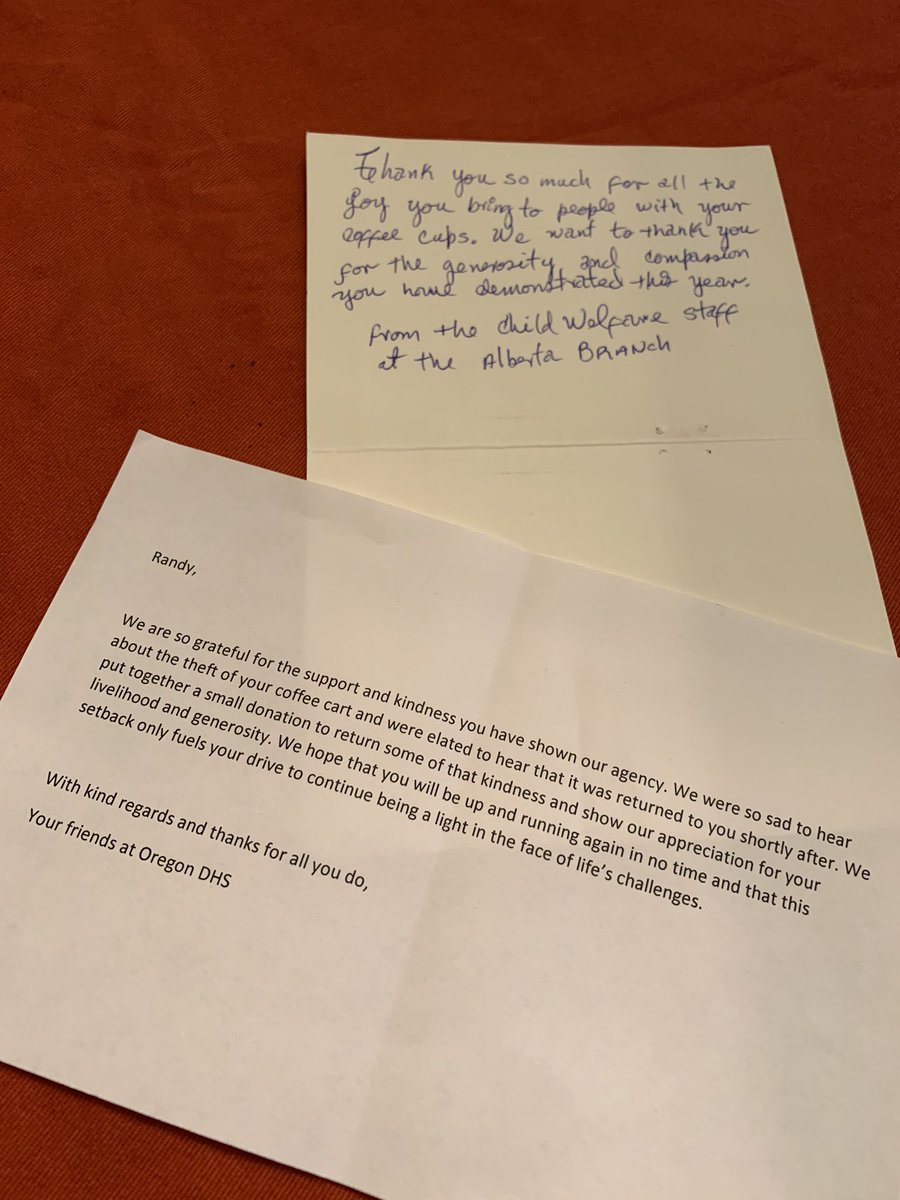 Thank you so much for all the
joy you bring to people with your
coffee cups. We want to thank you
for the generosity and compassion
you have demonstrated this year.
from the Child Welfare staff
at the Alberta BRANCH
Randy,
We are so grateful for the support and kindness you have shown our agency. We were so sad to hear
about the theft of your coffee cart and were elated to hear that it was returned to you shortly after. We
put together a small donation to return some of that kindness and show our appreciation for your
livelihood and generosity. We hope that you will be up and running again in no time and that this
setback only fuels your drive to continue being a light in the face of life's challenges.
With kind regards and thanks for all you do,
Your friends at Oregon DHS